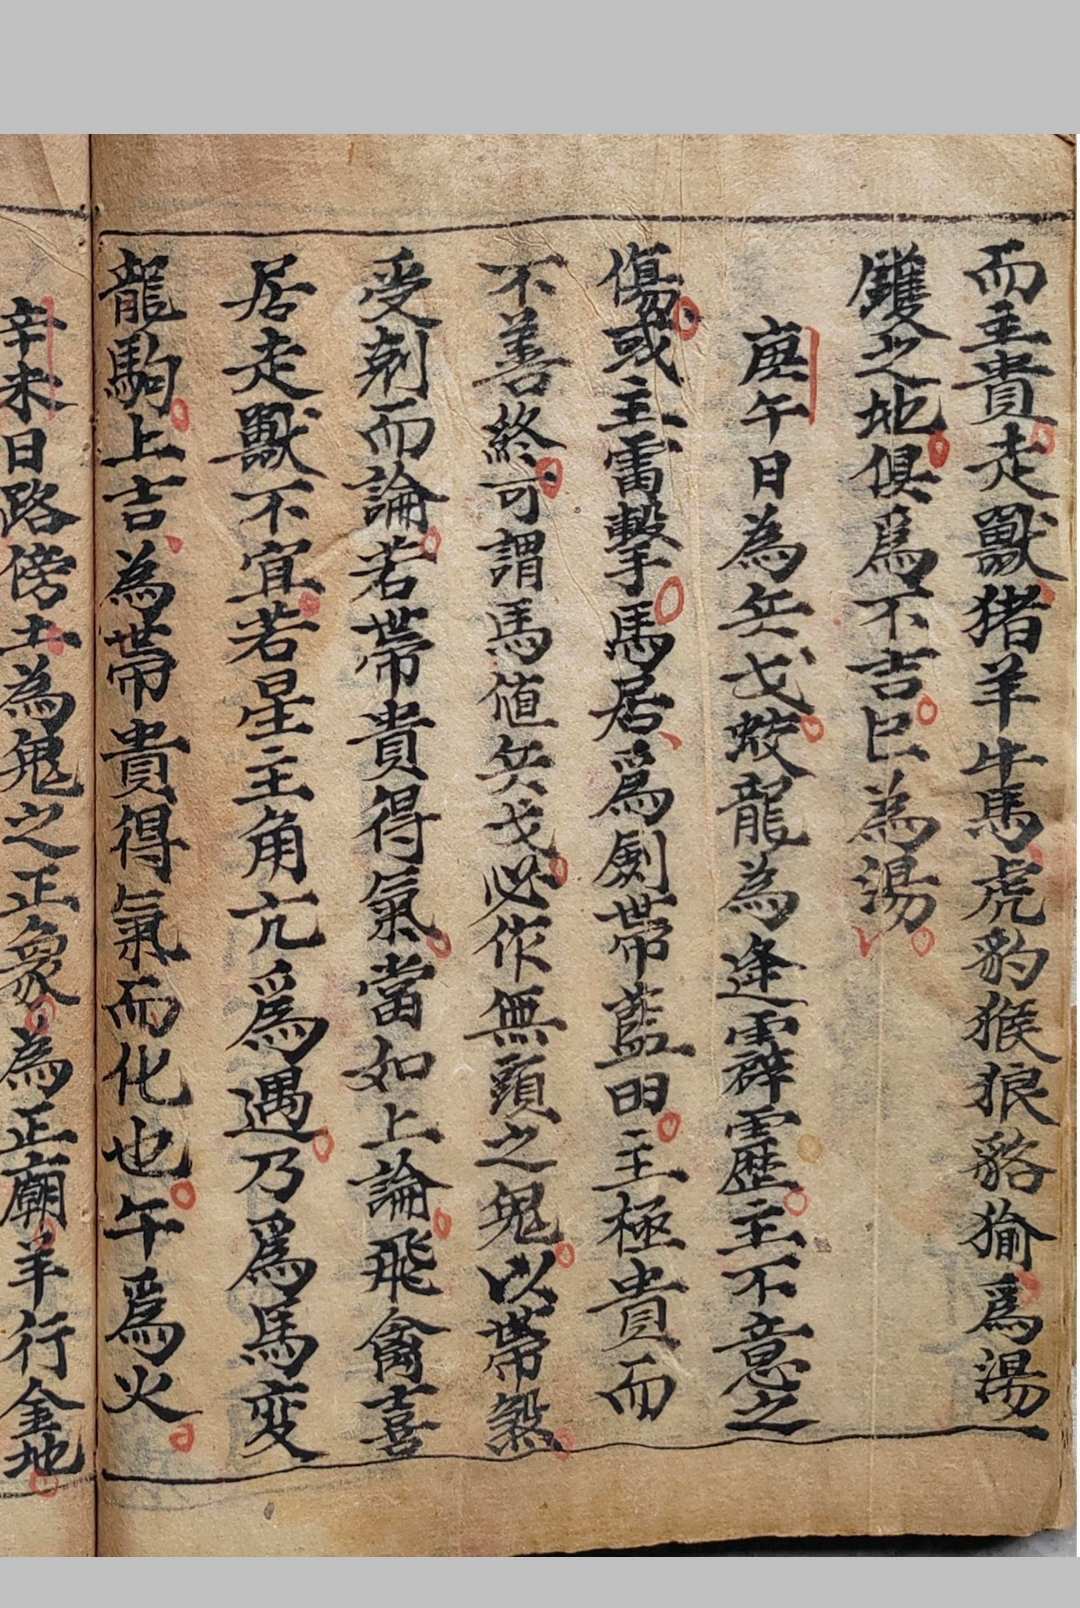 而主貴走獸猪羊牛馬虎豹猴狼貉㺄爲湯
鑊之地俱爲不吉巳為湯
庚午日為兵戈蛟龍為逢霹靂主不意之
傷或主雷擊馬居爲劍帶藍田主極貴而
不善終可謂馬値兵戈必作無頭之鬼以帶煞
受剋而論若帶貴得氣當如上論飛禽喜
居走獸不宜若星主角亢爲遇乃爲馬変
龍駒上吉為帶貴得氣而化也午爲火
辛未日路傍土為鬼之正象為正廟羊行金地